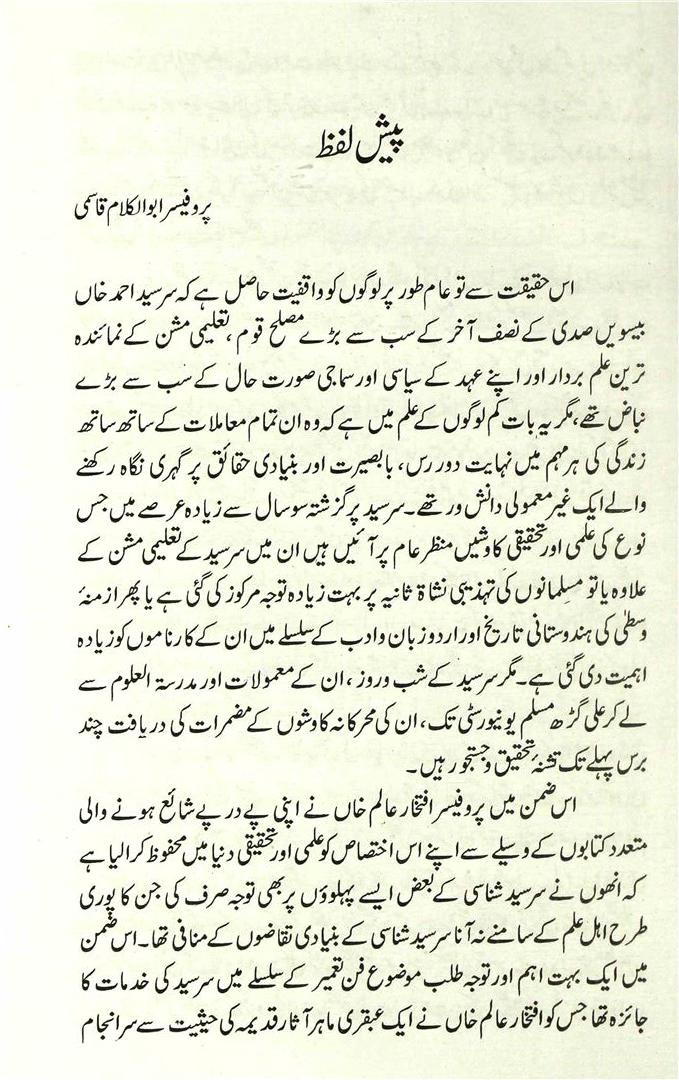 پیش لفظ
پروفیسر ابوالکلام قاسمی
اس حقیقت سے تو عام طور پر لوگوں کو واقفیت حاصل ہے کہ سرسید احمد خاں
بیسویں صدی کے نصف آخر کے سب سے بڑے مصلح قوم، تعلیمی مشن کے نمائندہ
ترین علم بردار اور اپنے عہد کے سیاسی اور سماجی صورت حال کے سب سے بڑے
نباض تھے، مگر یہ بات کم لوگوں کے علم میں ہے کہ وہ ان تمام معاملات کے ساتھ ساتھ
زندگی کی ہر مہم میں نہایت دور رس، بابصیرت اور بنیادی حقائق پر گہری نگاہ رکھنے
والے ایک غیر معمولی دانش ور تھے۔ سرسید پر گزشتہ سو سال سے زیادہ عرصے میں جس
نوع کی علمی اور تحقیقی کاوشیں منظر عام پر آئیں ہیں ان میں سرسید کے تعلیمی مشن کے
علاوہ یا تو مسلمانوں کی تہذیبی نشاۃ ثانیہ پر بہت زیادہ توجہ مرکوز کی گئی ہے یا پھر ازمنۂ
وسطیٰ کی ہندوستانی تاریخ اور اردو زبان وادب کے سلسلے میں ان کے کارناموں کو زیادہ
اہمیت دی گئی ہے۔ مگر سرسید کے شب وروز، ان کے معمولات اور مدرسۃ العلوم سے
لے کر علی گڑھ مسلم یونیورسٹی تک، ان کی محرکانہ کاوشوں کے مضمرات کی دریافت چند
برس پہلے تک تشنۂ تحقیق وجستجو رہیں۔
اس ضمن میں پروفیسر افتخار عالم خاں نے اپنی پے در پے شائع ہونے والی
متعدد کتابوں کے وسیلے سے اپنے اس اختصاص کو علمی اور تحقیقی دنیا میں محفوظ کرالیا ہے
کہ انھوں نے سرسید شناسی کے بعض ایسے پہلوؤں پر بھی توجہ صرف کی جن کا پوری
طرح اہل علم کے سامنے نہ آنا سرسید شناسی کے بنیادی تقاضوں کے منافی تھا۔ اس ضمن
میں ایک بہت اہم اور توجہ طلب موضوع فن تعمیر کے سلسلے میں سرسید کی خدمات کا
جائزہ تھا جس کو افتخار عالم خاں نے ایک عبقری ماہر آثار قدیمہ کی حیثیت سے سرانجام